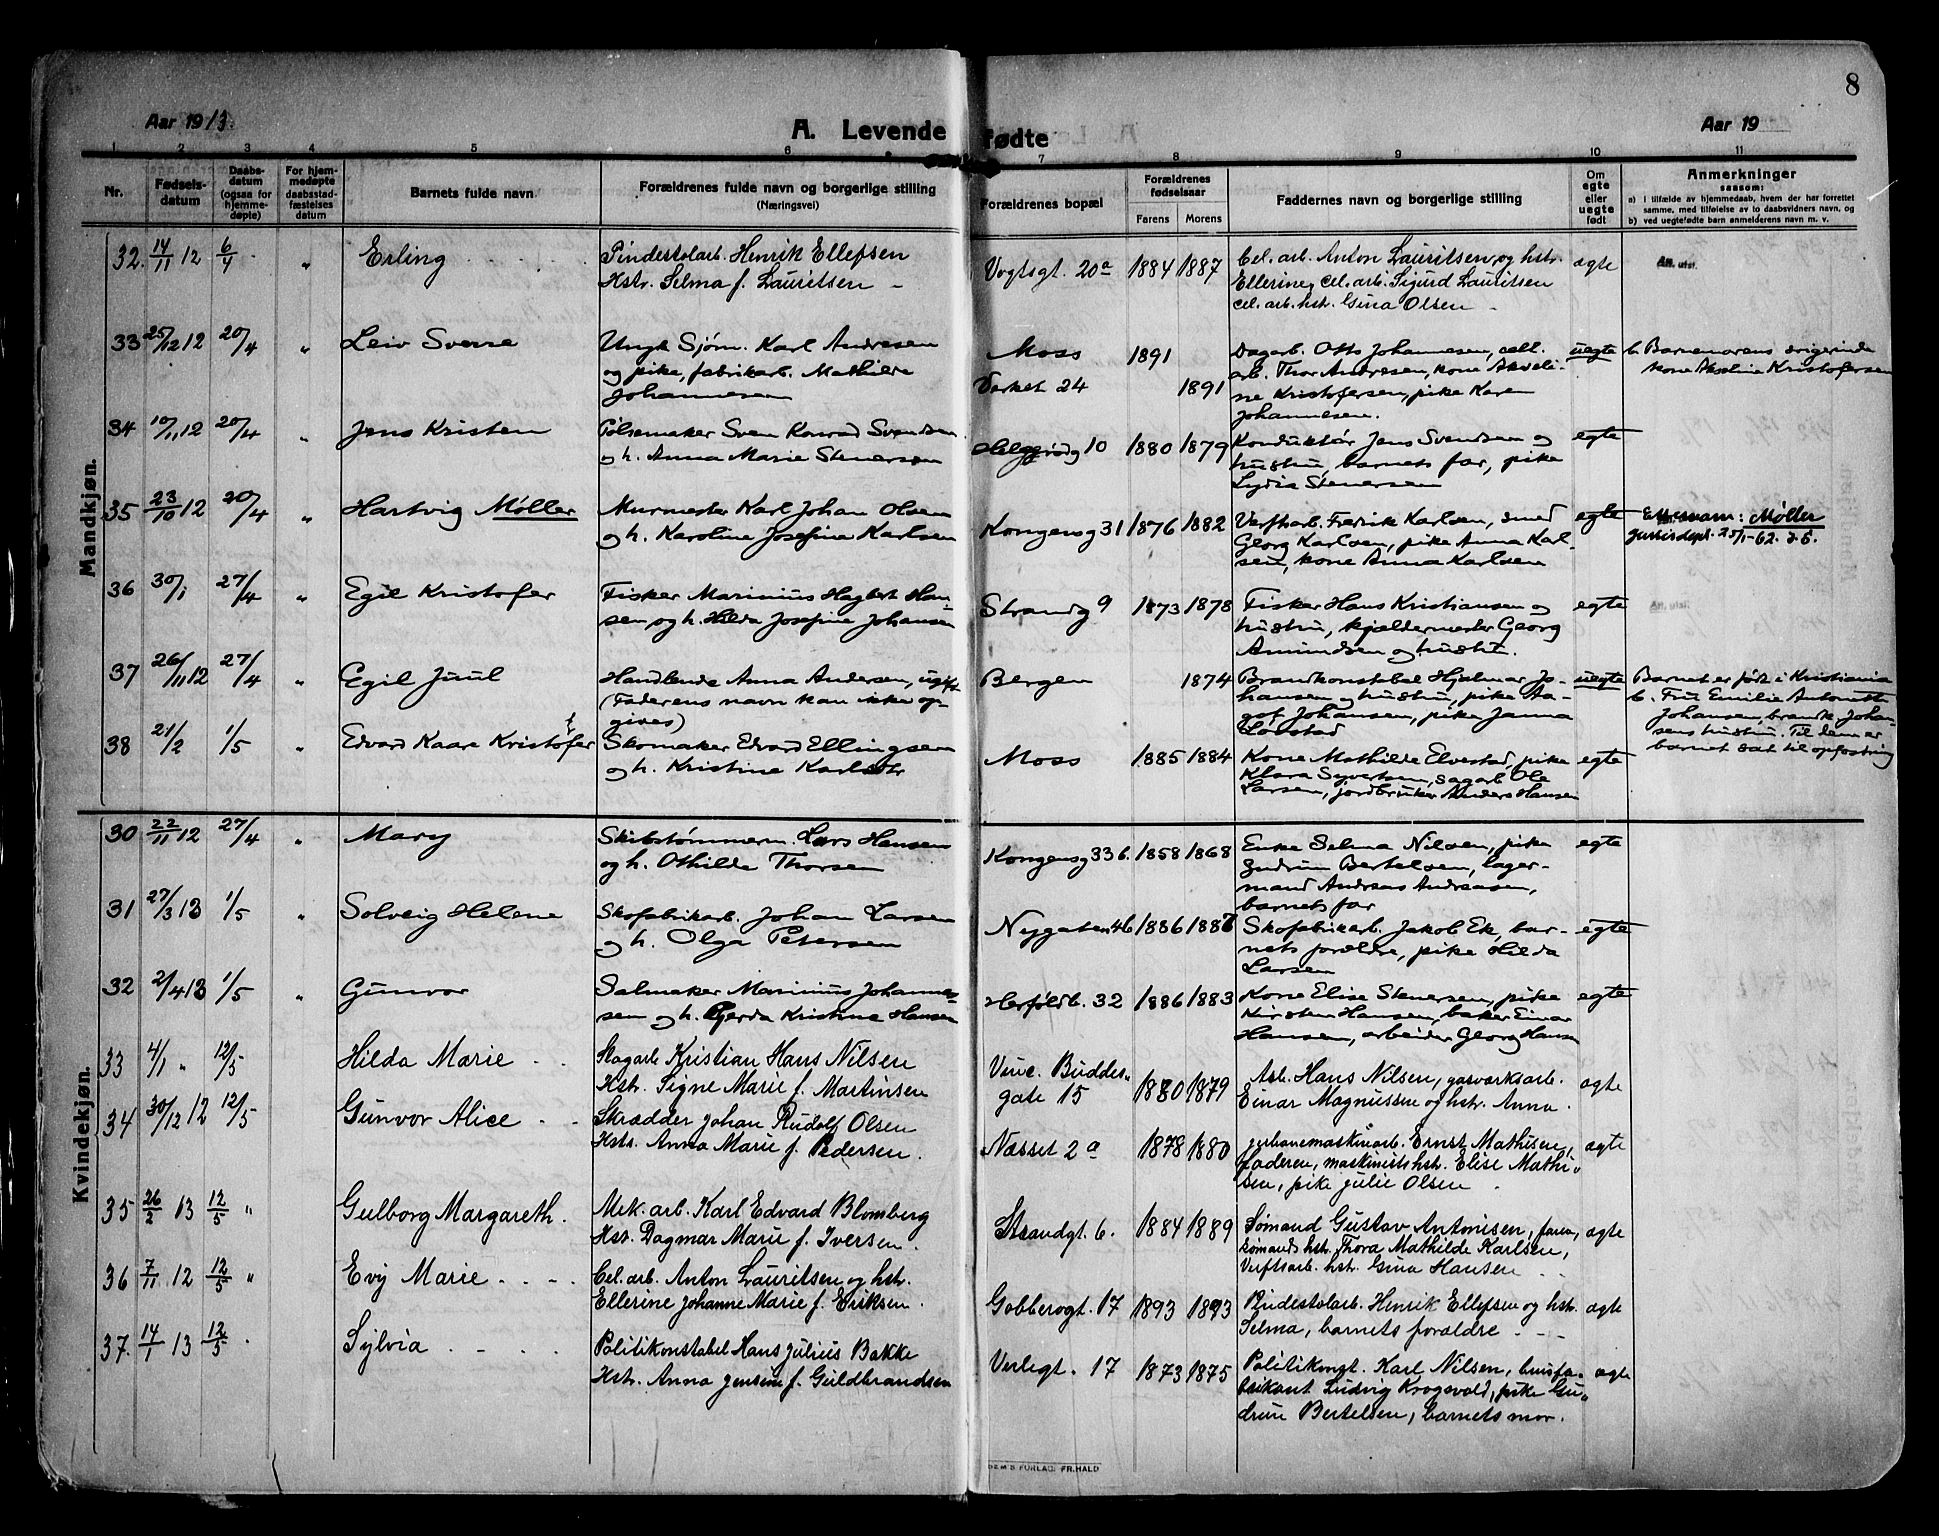 8
Aar 1913.
A. Levende fødte
Aar 19
1 2 3 4 5 6 7 8 9 10 11
Nr.
Fødsels-
datum
Daabs-
datum
(ogsaa for
hjemme-
døpte)
For hjem-
medøpte
daabsstad-
fæstelses
datum
Barnets fulde navn
Forældrenes fulde navn og borgerlige stilling
(Næringsvei)
Forældrenes bopæl
Forældrenes
fødselsaar
Farens Morens
Faddernes navn og borgerlige stilling
Om
egte
eller
uegte
født
Anmerkninger
saasom:
a) I tilfælde av hjemmedaab, hvem der har forrettet
samme, med tilføielse av to daabsvidners navn, og
b) ved uegtefødte barn anmelderens navn m. v.
Mandkjøn.
32. 14/11 12 6/4 " Erling
Pindestolarb. Henrik Ellefsen
Hstr. Selma f. Lauritsen
Vogtsgt. 20a 1884 1887
Cel. arb. Anton Lauritsen og hstr.
Ellerine, cel. arb. Sigurd Lauritsen
cel. arb. hst. Gina Olsen
ægte
An. utst.
33 25/12 12 20/4 " Leiv Sverre
Ungk. Sjøm. Karl Andresen
og pike, fabrikarb. Mathilde
Johannesen
Moss 1891
Værket 24 1891
Dagarb. Otto Johannesen, cell.
arb. Thor Andresen, kone Akseli-
ne Kristofersen, pike Karen
Johannesen.
uegte
b. Barnemorens svigerinde
kone Akseline Kristofersen
34 10/11 12 20/4 " Jens Kristen
Pølsemaker Sven Konrad Svendsen
og h. Anna Marie Stenersen
Helgerødg 10 1880 1879
Konduktør Jens Svendsen og
hustru, barnets far, pike
Lydia Stenersen
egte
35 23/10 12 20/4 " Hartvig Møller
Murmester Karl Johan Olsen
og h. Karoline Josefine Karlsen
Kongensg 31 1876 1882
Verftarb. Fredrik Karlsen, smed
Georg Karlsen, pike Anna Karl-
sen, kone Anna Karlsen
egte
Etternavn: Møller
justisdept. 25/1-62
36 30/1 27/4 " Egil Kristofer
Fisker Marinius Hagbart Han-
sen og h. Hilda Josefine Johansen
Strandg 9 1873 1878
Fisker Hans Kristiansen og
hustru, kjældermester Georg
Amundsen og hustru.
egte
An. utst.
37 26/11 12 27/4 " Egil Juul
Handlende Anna Andersen, ugift
(Faderens navn kan ikke op-
gives)
Bergen 1874
Brandkonstabel Hjalmar Jo-
hansen og hustru, pike Aa-
got Johansen, pike Janna
Løvstad
uegte
Barnet er født i Kristiania
b. Fru Emilie Antonette
Johansen, brandk. Johan-
sens hustru. Til dem er
barnet sat til opfostring
38 21/2 1/5 " Edvard Kaare Kristoffer
Skomaker Edvard Ellingsen
og h. Kristine Karlstr
Moss 1885 1884
Kone Mathilde Elvestad, pike
Klara Syvertsen, sagarb Ole
Larsen, jordbruker Anders Hansen
egte
Kvindekjøn.
30 22/11 12 27/4 " Mary
Skibstømmerm. Lars Hansen
og h. Othilde Thorsen
Kongensg 33 b. 1858 1868
Enke Selma Nilsen, pike
Gudrun Bertelsen, lager-
mand Andreas Andreasen,
barnets far
egte
31 27/3 13 1/5 " Solveig Helene
Skofabrikarb. Johan Larsen
og h. Olga Petersen
Nygaten 46 1886 1887
Skofabrikarb. Jakob Ek, bar-
nets forældre, pike Hilda
Larsen
egte
32 2/4 13 1/5 " Gunvor
Salmaker Marinius Johannes-
sen og h. Gjerda Kristine Hansen
Herføldb. 32 1886 1883
Kone Elise Stenersen, pike
Kirsten Hansen, baker Einar
Hansen, arbeider Georg Hansen
egte
33 4/1 " 12/5 Hilda Marie
Sagarb Kristian Hans Nilsen
Hstr. Signe Marie f. Martinsen
Vinc. Buddes-
gate 15 1880 1879
Arb. Hans Nilsen, gasverksarb.
Einar Magnussen og hstr. Anna.
ægte
34 30/12 12 12/5 Gunvor Alice
Skrædder Johan Rudolf Olsen
Hstr. Anna Marie f. Pedersen.
Næsset 2a 1878 1880
jerbanemaskinarb. Ernst Mathisen,
faderen, maskinists hstr. Elise Mathi-
sen, pike Julie Olsen
ægte
35 26/2 13 12/5 " Gulborg Margareth.
Mek. arb. Karl Edvard Blomberg
Hstr. Dagmar Marie f. Iversen.
Strandgt. 6. 1884 1889
Sømand Gustav Antonisen, faren,
sømands hstr. Thora Mathilde Karlsen,
Verftsarb. hstr. Gina Hansen
ægte
36 7/11 12 12/5 " Evy Marie
Cel. arb. Anton Lauritsen og hstr.
Ellerine Johanne Marie f. Eriksen.
Gobberogt. 17 1893 1893
Pindestolarb. Henrik Ellefsen og hstr.
Selma, barnets forældre
ægte
37. 14/1 13 12/5 Sylvia
Politikonstabel Hans Julius Bakke
Hstr. Anna Jensine f. Guldbrandsen
Verlegt. 17 1873 1875
Politikonst. Karl Nilsen, brusfa-
brikant Ludvig Krogsvold, pike Gu-
drun Bertelsen, barnets mor.
ægte
SEM'S FORLAG: FR.HALD